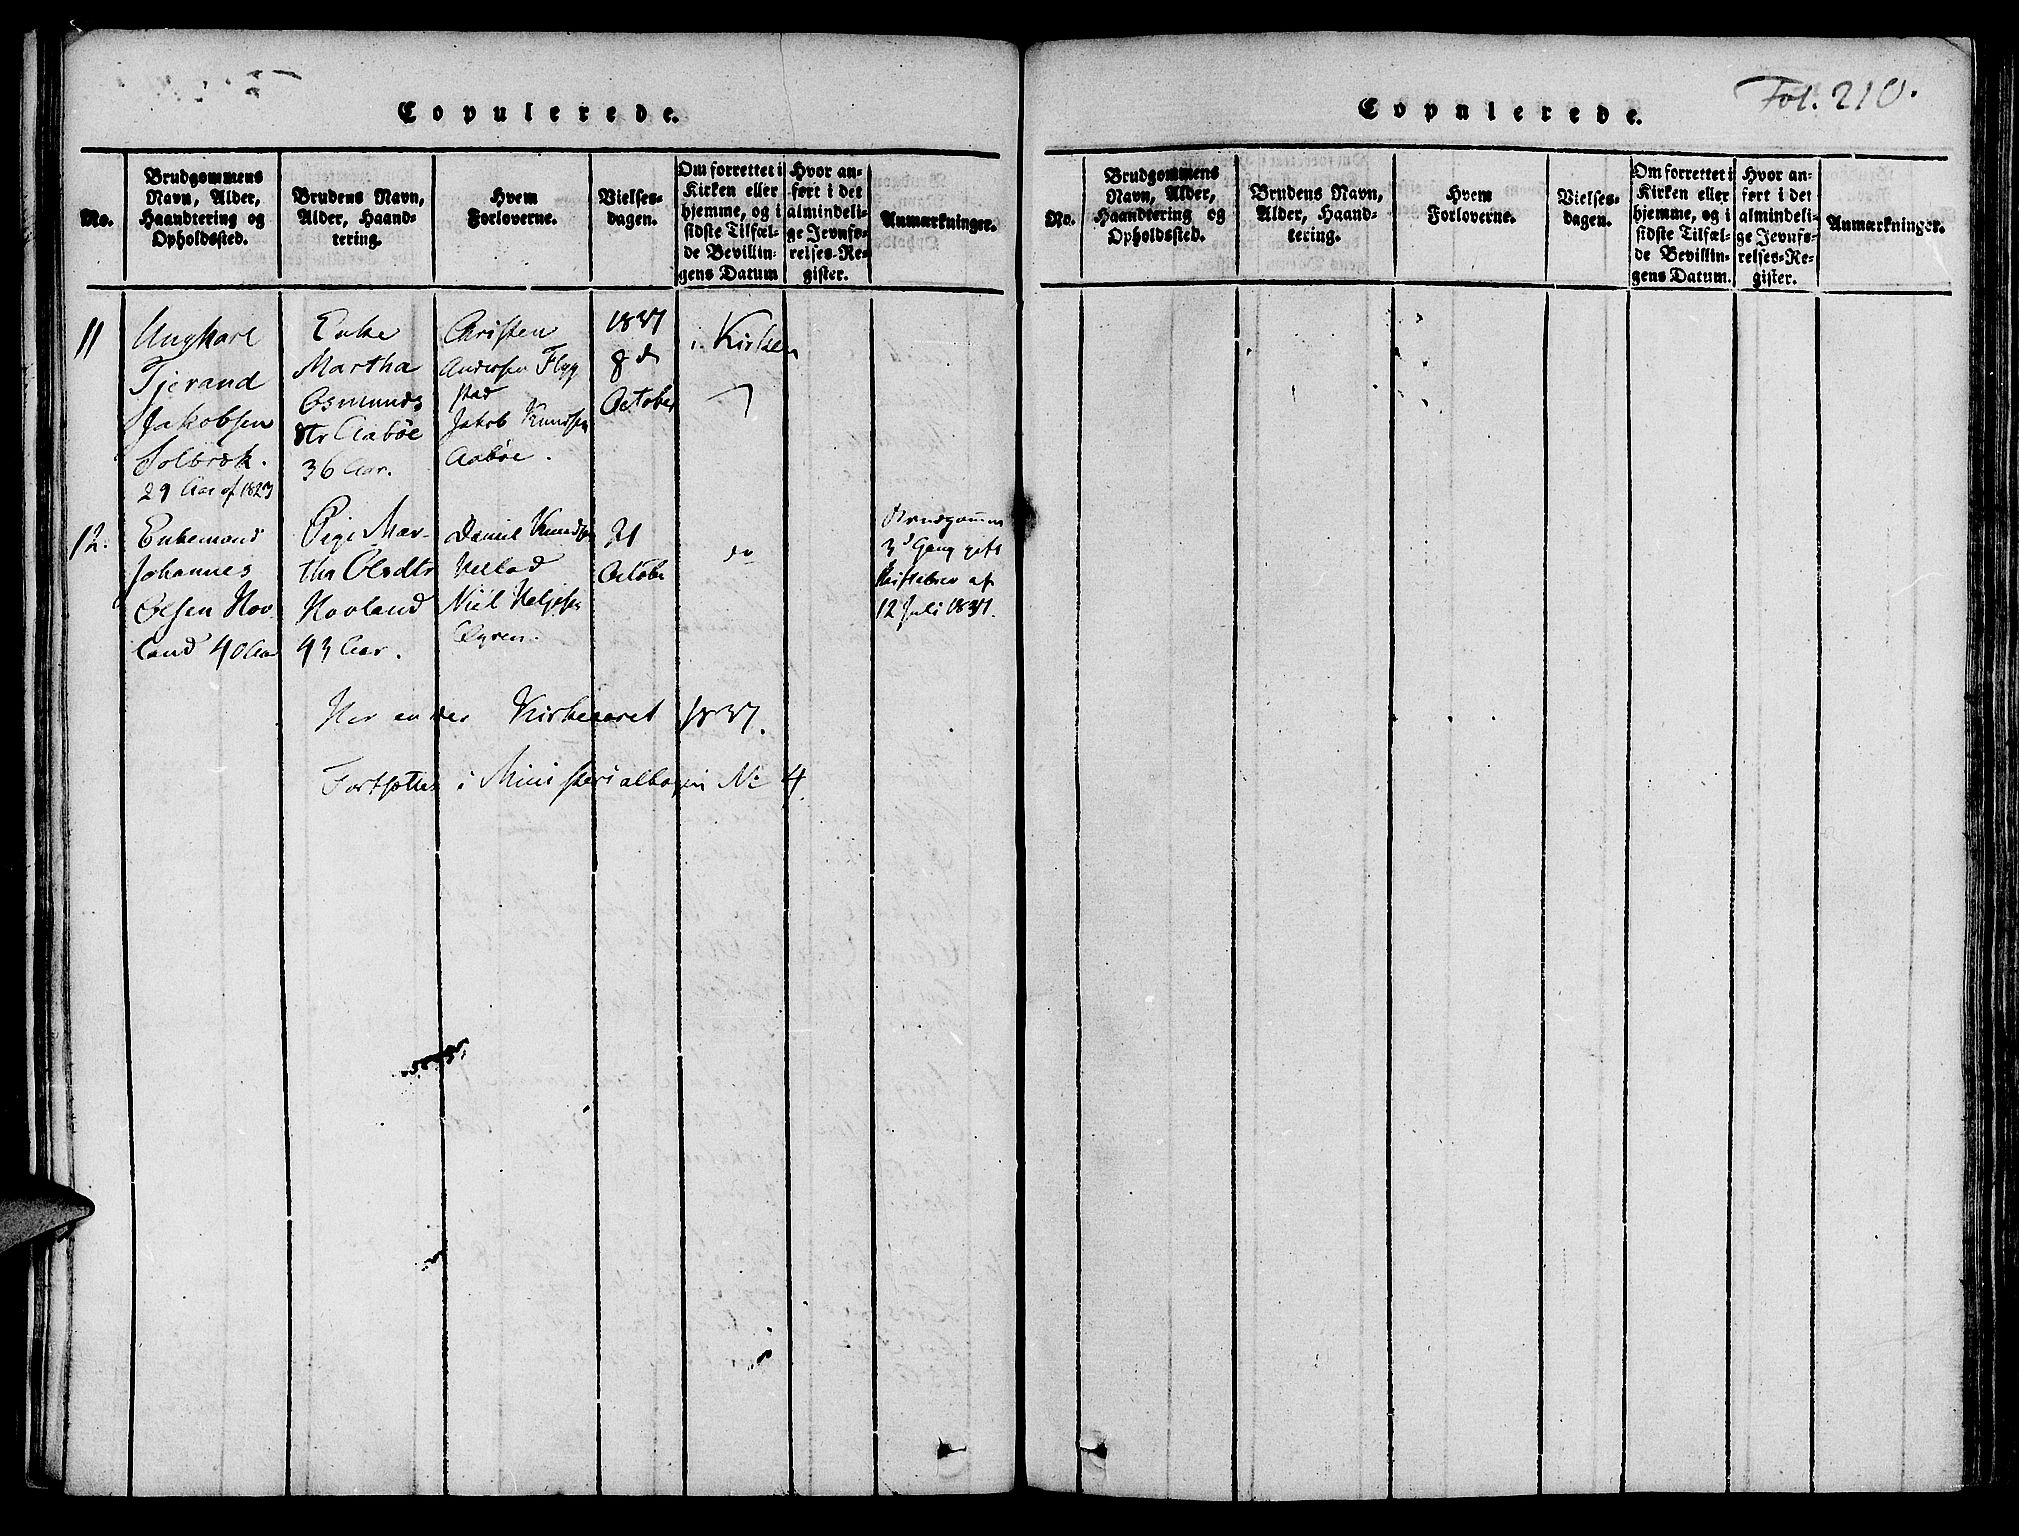 Copulerede.
No.
Brudgommens
Navn, Alder,
Haandtering og
Opholdssted.
Brudens Navn,
Alder, Haand-
tering.
Hvem
Forloverne.
Vielses-
dagen.
Om forrettet i
Kirken eller
hjemme, og i
sidste Tilfæl-
de Bevillin-
gens Datum
Hvor an-
ført i det
almindeli-
ge Jevnfø-
relses-Re-
gister.
Anmærkninger.
11
Ungkarl
Tjerand
Jakobsen
Solbræk.
29 Aar af 1823
Enke
Martha
Osmunds
dtr Aaböe
36 Aar.
Christen
Andersen Flyg
stad
Jakob Knudsen
Aaböe.
1837
8 d
October
i Kirken
12.
Enkemand
Johannes
Olsen Hov-
land 40 Aar
Pige Mar-
tha Olsdtr
Hovland
43 Aar.
Daniel Knudsen
Niel Helgesen
21
Octobr
do
Brudgommen
3d Gang gift
Skiftebrev af
12 Juli 1837.
Her ender Kirkeaaret 1837.
Fortsættes i Ministerialbogen No 4
Copulerede.
Fol. 210.
No.
Brudgommens
Navn, Alder,
Haandtering og
Opholdssted.
Brudens Navn,
Alder, Haand-
tering.
Hvem
Forloverne.
Vielses-
dagen.
Om forrettet i
Kirken eller
hjemme, og i
sidste Tilfæl-
de Bevillin-
gens Datum.
Hvor an-
ført i det
almindeli-
ge Jevnfø-
relses-Re-
gister.
Anmærkninger.